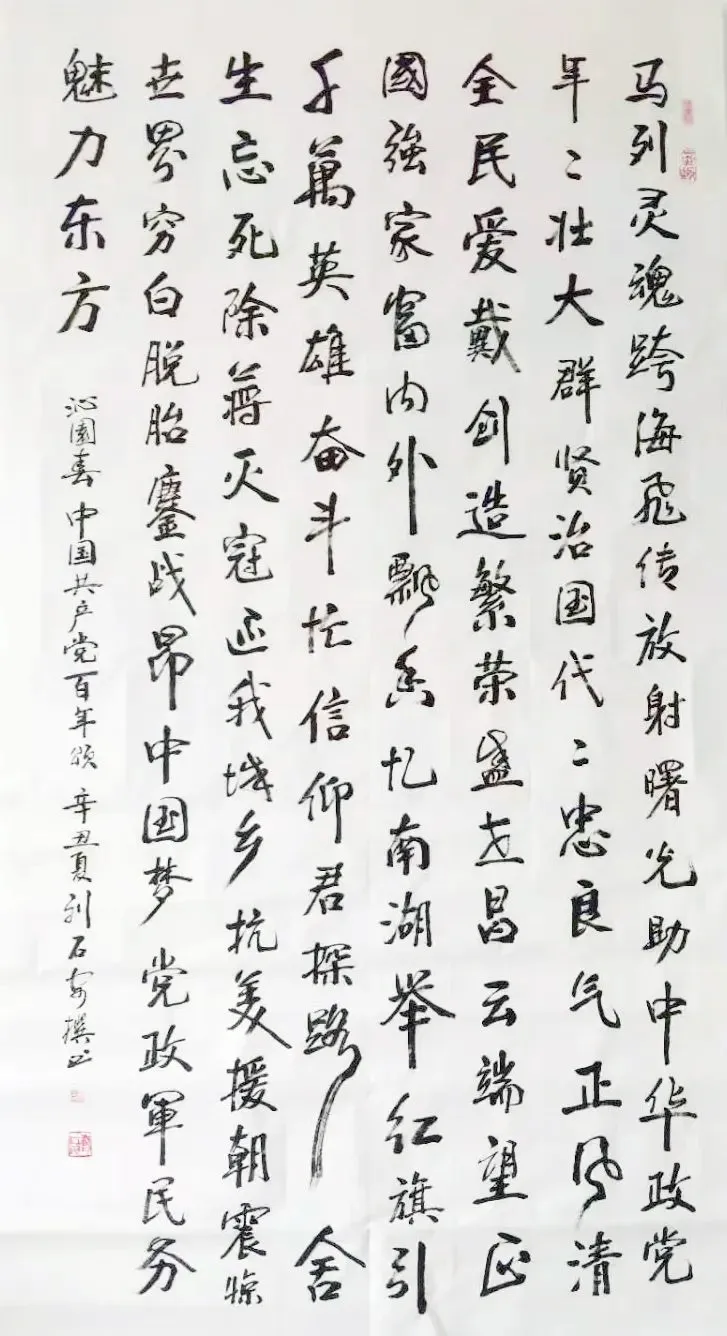 马列灵魂跨海飛传放射曙光助中华政党
年〻壮大群贤治国代〻忠良气正风清
全民爱戴创造繁荣盛世昌云端望正
國強家富内外飘香忆南湖举红旗引
千萬英雄奋斗忙信仰君探路舍
生忘死除蒋灭寇还我城乡抗美援朝震惊
世界穷白脱胎鏖战昂中国梦党政軍民务
魅力东方
沁園春 中国共产党百年颂 辛丑夏刘石安撰书